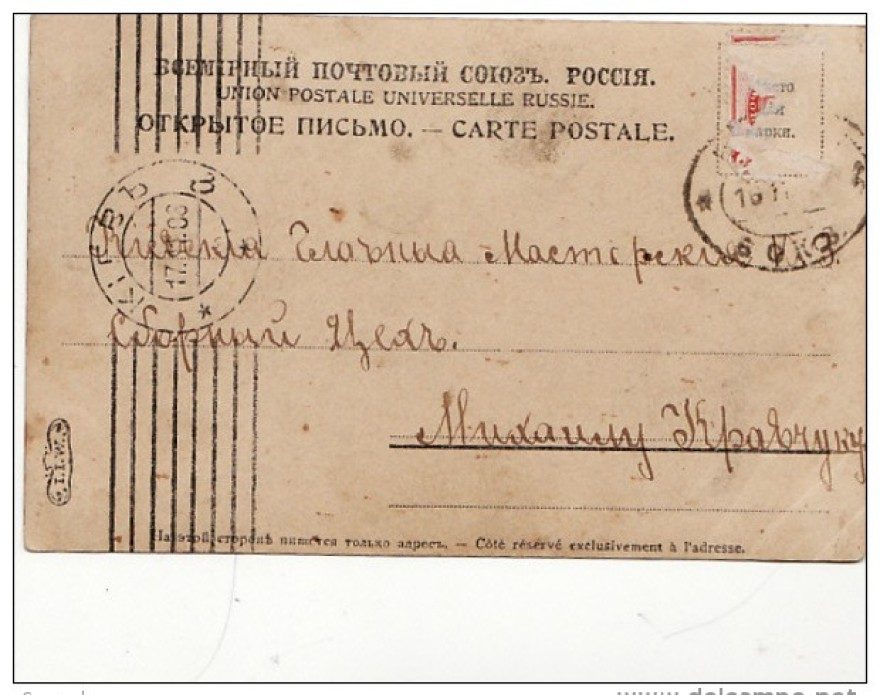 ВСЕМІРНЫЙ ПОЧТОВЫЙ СОЮЗЪ. РОССІЯ.
UNION POSTALE UNIVERSELLE RUSSIE.
ОТКРЫТОЕ ПИСЬМО. — CARTE POSTALE.
КІЕВЪ
Кіевскія Главныя Мастерскія
Сборный Цехъ.
Михаилу Кравчуку
На этой сторонѣ пишется только адресъ. — Côté réservé exclusivement à l'adresse.
www.delcampe.net